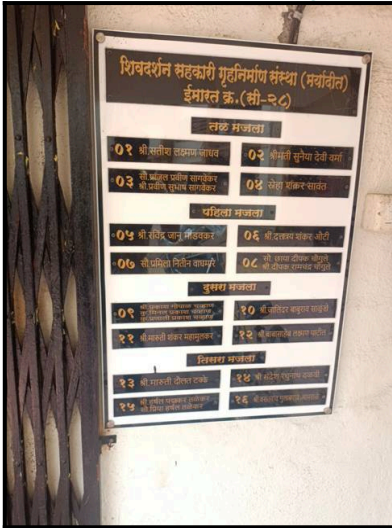 शिवदर्शन सहकारी गृहनिर्माण संस्था (मर्यादीत)
ईमारत क्र.(सी-२८)
तळ मजला
०१ श्री.सतीश लक्ष्मण जाधव
०२ श्रीमती सुनेया देवी वर्मा
०३ सौ.प्रांजल प्रवीण सागवेकर
श्री.प्रवीण सुभाष सागवेकर
०४ स्नेहा शंकर सावंत
पहिला मजला
०५ श्री.रविंद्र जानू मांडवकर
०६ श्री.दत्तात्रय शंकर ओटी
०७ सौ.प्रमिला नितीन वाघमारे
०८ सौ. छाया दीपक चौगुले
श्री.दीपक रामचंद्र चौगुले
दुसरा मजला
०९
१० श्री.चालिंदर बाबुराव साळुंखे
११ श्री.मारुती शंकर महामुलकर
१२ श्री.बाबासाहेब लक्ष्मण पाटील
तिसरा मजला
१३ श्री.मारुती दौलत टक्के
१४ श्री.संदेश रघुनाथ ढकवी
१५
१६